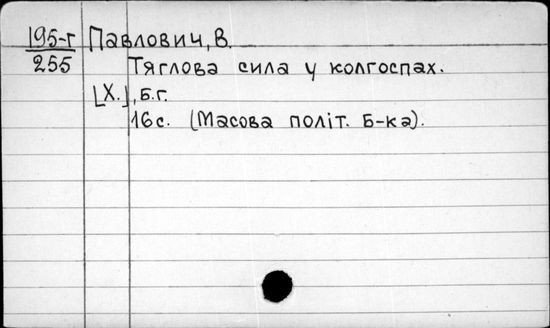 195-г Павлович, В.
255
Тяглова сила у колгоспах.
[Х.], Б.г.
16с. (Масова політ. Б-ка).